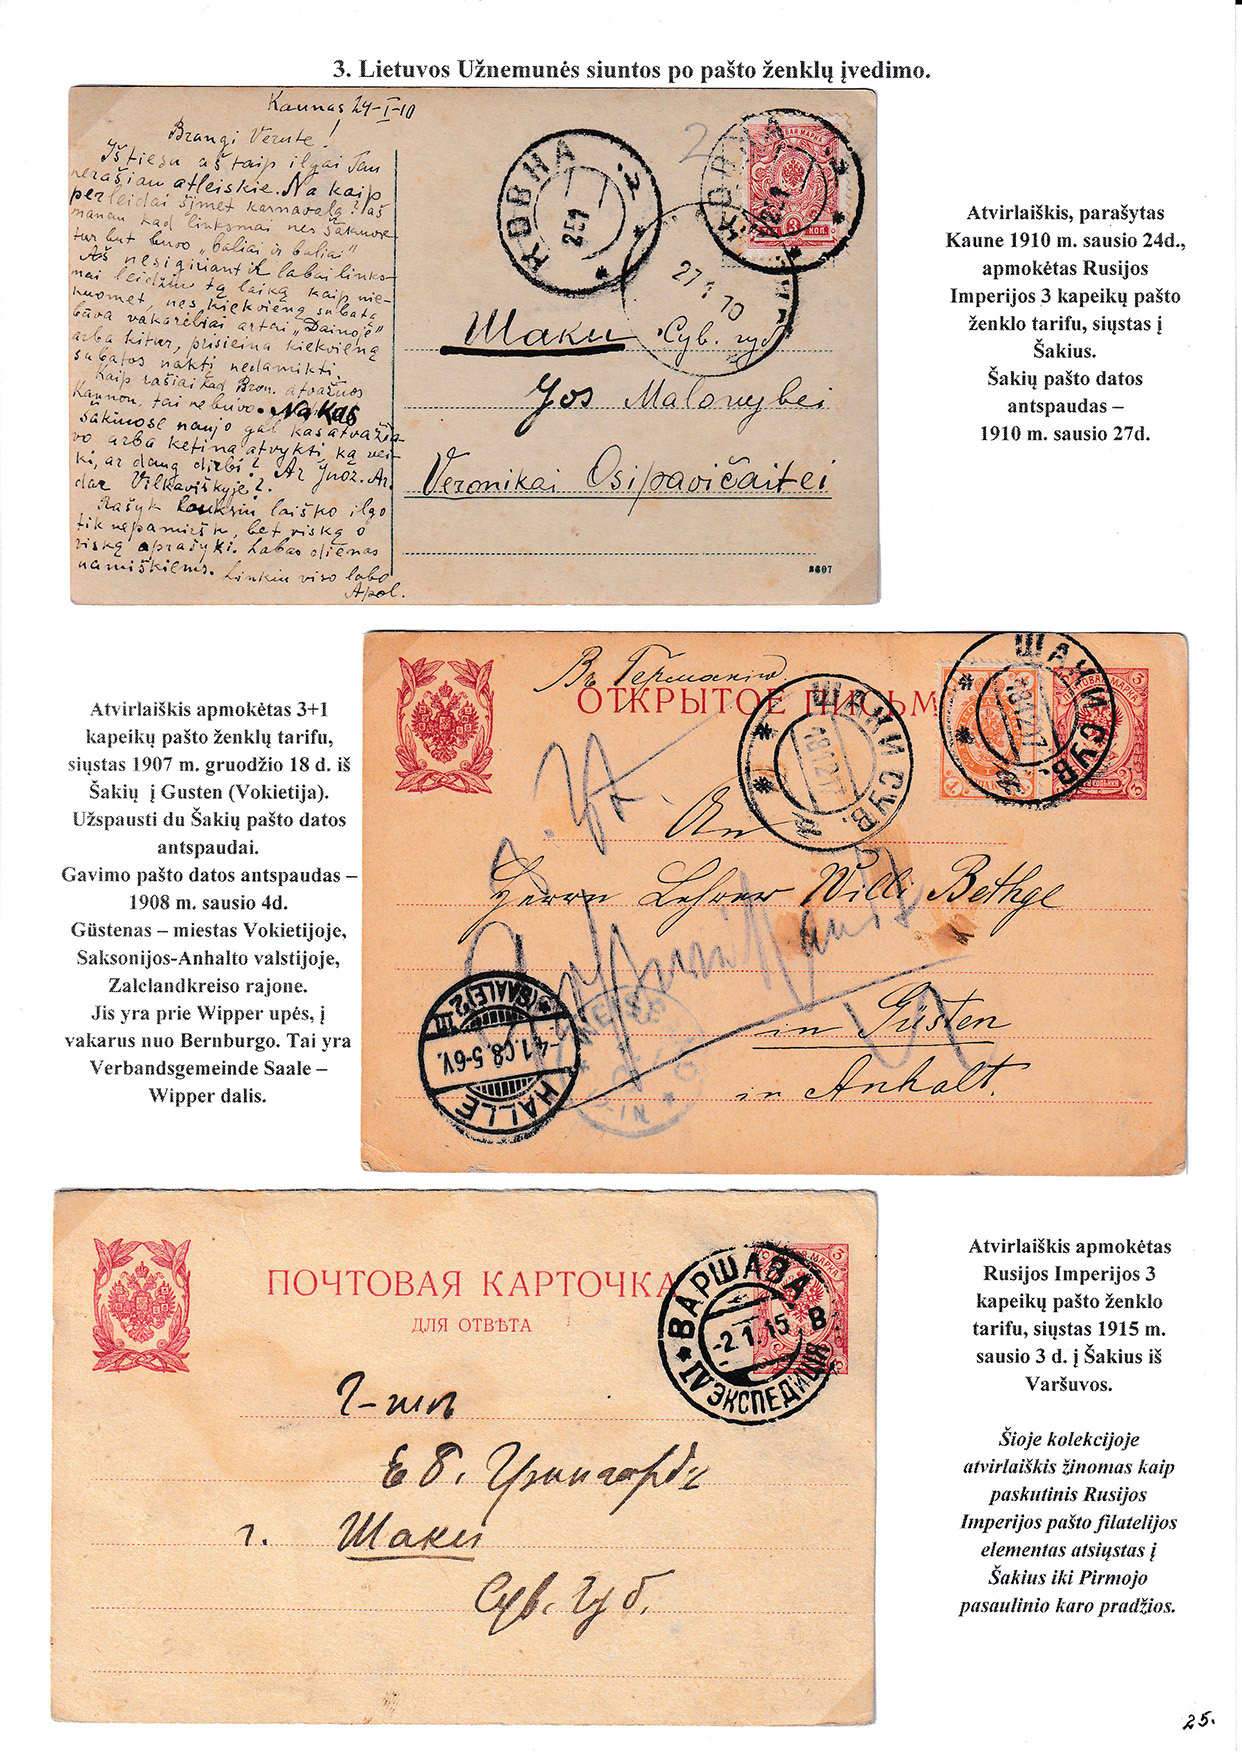 3. Lietuvos Užnemunės siuntos po pašto ženklų įvedimo.
Kaunas 24-I-10
Brangi Verute!
Ištiesu aš taip ilgai Tau
nerašiau atleiskie. Na kaip
perleidai šimet karnavalą? aš
manau kad linksmai nes Šakiuose
tur but buvo "baliai ir baliai"
Aš nesigiriant labai links-
mai leidžiu tą laiką kaip nie-
kuomet, nes kiekvieną subatą
buva vakarėliai artai "Dainoje"
arba kitur, prisieina kiekvieną
subatos naktį nedamikti.
Kaip rašiai kad Bron. atvažiuos
Kaunan, tai nebuvo. Na kas
Šakiuose naujo gal kas atvažia-
vo arba ketina atvykti, ką vei-
ki, ar daug dirbi? Ar Juoz. Ar.
dar Vilkaviškyje?
Rašyk lauksiu laiško ilgo
tik nepamiršk, bet viską o
viską aprašyki. Labas dienas
namiškiems. Linkiu viso labo
Apol.
КОВНА
251
КОВНА
ПОЧТОВАЯ МАРКА
3 КОП.
27 1 10
Шаки Сув. губ
Jos Malonybei
Veronikai Osipavičaitei
2
Atvirlaiškis, parašytas
Kaune 1910 m. sausio 24d.,
apmokėtas Rusijos
Imperijos 3 kapeikų pašto
ženklo tarifu, siųstas į
Šakius.
Šakių pašto datos
antspaudas –
1910 m. sausio 27d.
Atvirlaiškis apmokėtas 3+1
kapeikų pašto ženklų tarifu,
siųstas 1907 m. gruodžio 18 d. iš
Šakių į Gusten (Vokietija).
Užspausti du Šakių pašto datos
antspaudai.
Gavimo pašto datos antspaudas –
1908 m. sausio 4d.
Güstenas – miestas Vokietijoje,
Saksonijos-Anhalto valstijoje,
Zalclandkreiso rajone.
Jis yra prie Wipper upės, į
vakarus nuo Bernburgo. Tai yra
Verbandsgemeinde Saale –
Wipper dalis.
Въ Германію
ОТКРЫТОЕ ПИСЬМ
ШАКИ СУВ.
181207
ШАКИ СУВ.
181207
An
Herrn Lehrer Willi Bethge
in Güsten
in Anhalt.
HALLE (SAALE) 2
-4.1.08.5-6V.
ПОЧТОВАЯ КАРТОЧКА
ДЛЯ ОТВѢТА
ВАРШАВА В
-2.1.15
IV ЭКСПЕДИЦIЯ
г. Шаки
Сув. Губ.
Atvirlaiškis apmokėtas
Rusijos Imperijos 3
kapeikų pašto ženklo
tarifu, siųstas 1915 m.
sausio 3 d. į Šakius iš
Varšuvos.
Šioje kolekcijoje
atvirlaiškis žinomas kaip
paskutinis Rusijos
Imperijos pašto filatelijos
elementas atsiųstas į
Šakius iki Pirmojo
pasaulinio karo pradžios.
25.